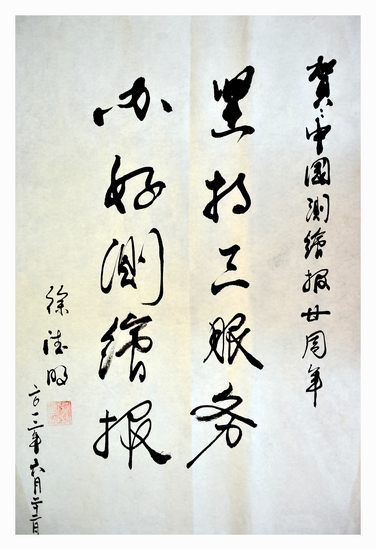 贺《中国測繪报》廿周年
坚持三服务
办好測繪报
徐德明
二〇一二年六月二十二日